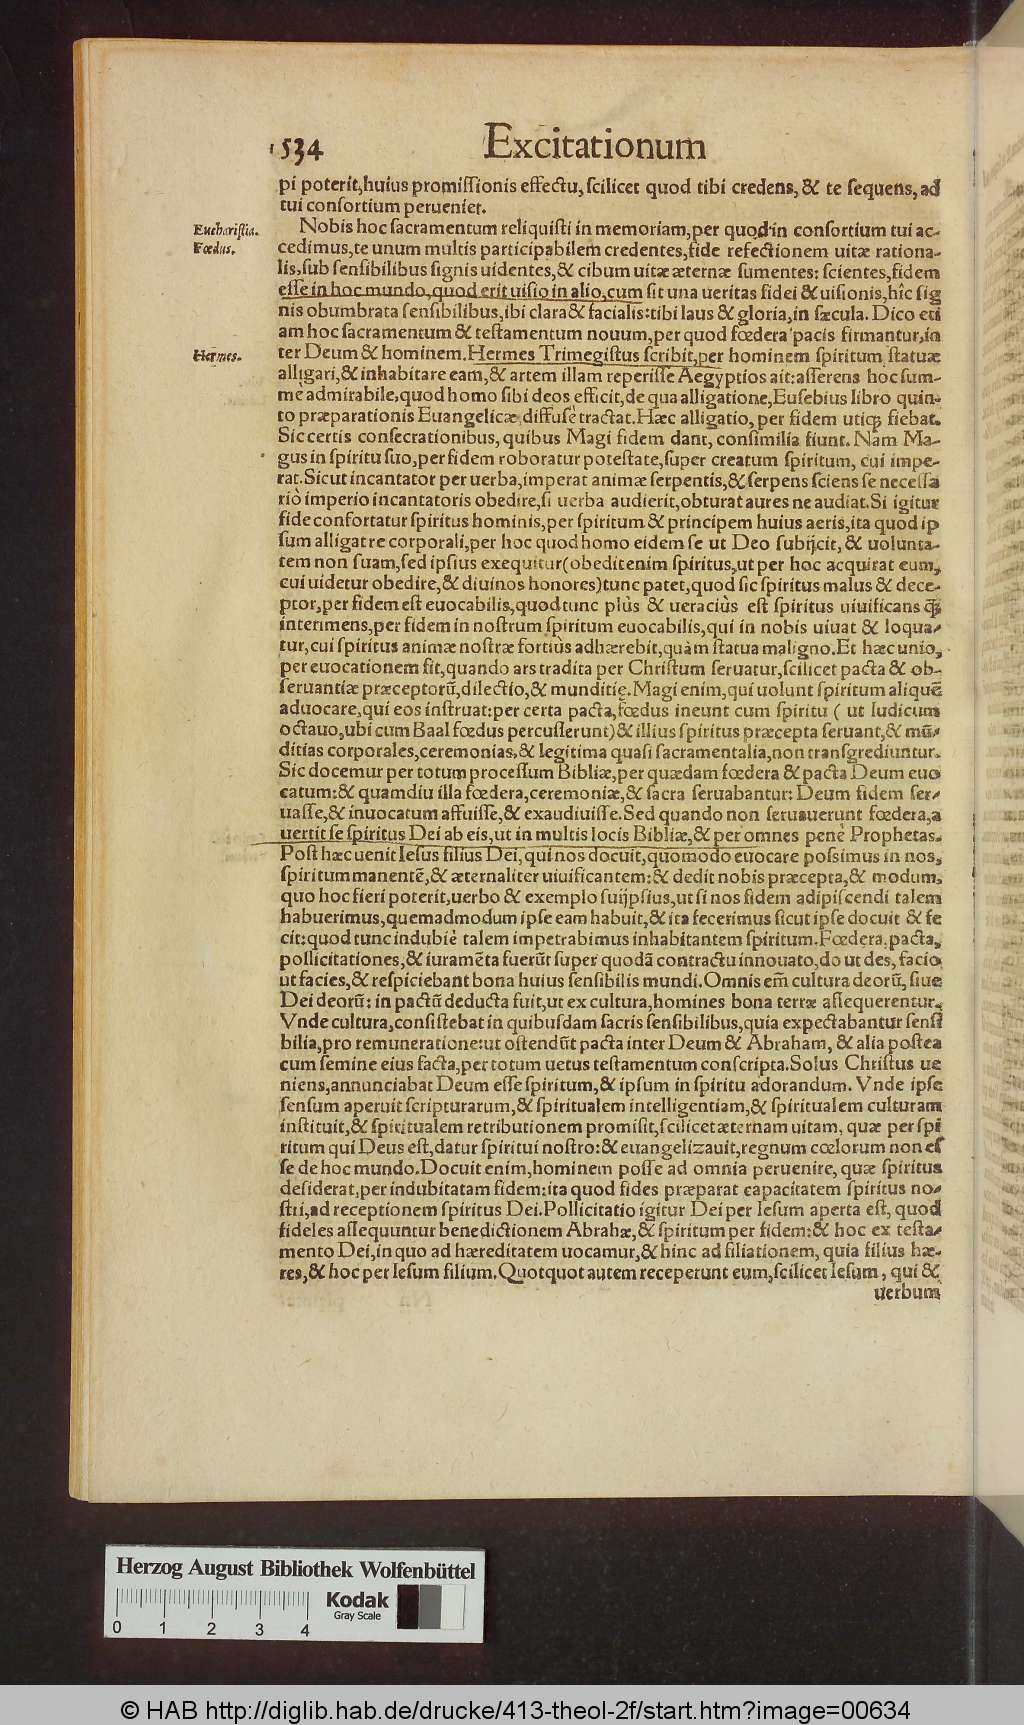 534 Excitationum
pi poterit, huius promissionis effectu, scilicet quod tibi credens, & te sequens, ad
tui consortium perueniet.
Eucharistia. Nobis hoc sacramentum reliquisti in memoriam, per quod in consortium tui ac-
Fœdus. cedimus, te unum multis participabilem credentes, fide refectionem uitæ rationa-
lis, sub sensibilibus signis uidentes, & cibum uitæ æternæ sumentes: scientes, fidem
esse in hoc mundo, quod erit uisio in alio, cum sit una ueritas fidei & uisionis, hîc sig
nis obumbrata sensibilibus, ibi clara & facialis: tibi laus & gloria, in sæcula. Dico eti
am hoc sacramentum & testamentum nouum, per quod fœdera pacis firmantur, in
Hermes. ter Deum & hominem. Hermes Trimegistus scribit, per hominem spiritum statuæ
alligari, & inhabitare eam, & artem illam reperisse Aegyptios ait: asserens hoc sum-
me admirabile, quod homo sibi deos efficit, de qua alligatione, Eusebius libro quin-
to præparationis Euangelicæ, diffusè tractat. Hæc alligatio, per fidem utiq; fiebat.
Sic certis consecrationibus, quibus Magi fidem dant, consimilia fiunt. Nam Ma-
gus in spiritu suo, per fidem roboratur potestate, super creatum spiritum, cui impe-
rat. Sicut incantator per uerba, imperat animæ serpentis, & serpens sciens se necessa
riò imperio incantatoris obedire, si uerba audierit, obturat aures ne audiat. Si igitur
fide confortatur spiritus hominis, per spiritum & principem huius aeris, ita quod ip
sum alligat re corporali, per hoc quod homo eidem se ut Deo subijcit, & uolunta-
tem non suam, sed ipsius exequitur (obedit enim spiritus, ut per hoc acquirat eum,
cui uidetur obedire, & diuinos honores) tunc patet, quod sic spiritus malus & dece-
ptor, per fidem est euocabilis, quod tunc plùs & ueraciùs est spiritus uiuificans q̃
interimens, per fidem in nostrum spiritum euocabilis, qui in nobis uiuat & loqua-
tur, cui spiritus animæ nostræ fortiùs adhærebit, quàm statua maligno. Et hæc unio,
per euocationem fit, quando ars tradita per Christum seruatur, scilicet pacta & ob-
seruantiæ præceptorũ, dilectio, & munditię. Magi enim, qui uolunt spiritum aliquẽ
aduocare, qui eos instruat: per certa pacta, fœdus ineunt cum spiritu ( ut Iudicum
octauo, ubi cum Baal fœdus percusserunt) & illius spiritus præcepta seruant, & mũ-
ditias corporales, ceremonias, & legitima quasi sacramentalia, non transgrediuntur.
Sic docemur per totum processum Bibliæ, per quædam fœdera & pacta Deum euo
catum: & quamdiu illa fœdera, ceremoniæ, & sacra seruabantur: Deum fidem ser-
uasse, & inuocatum affuisse, & exaudiuisse. Sed quando non seruauerunt fœdera, a
uertit se spiritus Dei ab eis, ut in multis locis Bibliæ, & per omnes penè Prophetas.
Post hæc uenit Iesus filius Dei, qui nos docuit, quomodo euocare possimus in nos,
spiritum manentẽ, & æternaliter uiuificantem: & dedit nobis præcepta, & modum,
quo hoc fieri poterit, uerbo & exemplo suijpsius, ut si nos fidem adipiscendi talem
habuerimus, quemadmodum ipse eam habuit, & ita fecerimus sicut ipse docuit & fe
cit: quod tunc indubiè talem impetrabimus inhabitantem spiritum. Fœdera, pacta,
pollicitationes, & iuramẽta fuerũt super quodã contractu innouato, do ut des, facio
ut facies, & respiciebant bona huius sensibilis mundi. Omnis em̃ cultura deorũ, siue
Dei deorũ: in pactũ deducta fuit, ut ex cultura, homines bona terræ assequerentur.
Vnde cultura, consistebat in quibusdam sacris sensibilibus, quia expectabantur sensi
bilia, pro remuneratione: ut ostendũt pacta inter Deum & Abraham, & alia postea
cum semine eius facta, per totum uetus testamentum conscripta. Solus Christus ue
niens, annunciabat Deum esse spiritum, & ipsum in spiritu adorandum. Vnde ipse
sensum aperuit scripturarum, & spiritualem intelligentiam, & spiritualem culturam
instituit, & spiritualem retributionem promisit, scilicet æternam uitam, quæ per spi
ritum qui Deus est, datur spiritui nostro: & euangelizauit, regnum cœlorum non es
se de hoc mundo. Docuit enim, hominem posse ad omnia peruenire, quæ spiritus
desiderat, per indubitatam fidem: ita quod fides præparat capacitatem spiritus no-
stri, ad receptionem spiritus Dei. Pollicitatio igitur Dei per Iesum aperta est, quod
fideles assequuntur benedictionem Abrahæ, & spiritum per fidem: & hoc ex testa-
mento Dei, in quo ad hæreditatem uocamur, & hinc ad filiationem, quia filius hæ-
res, & hoc per Iesum filium. Quotquot autem receperunt eum, scilicet Iesum, qui &
uerbum
Herzog August Bibliothek Wolfenbüttel
Kodak
Gray Scale
0 1 2 3 4
© HAB http://diglib.hab.de/drucke/413-theol-2f/start.htm?image=00634